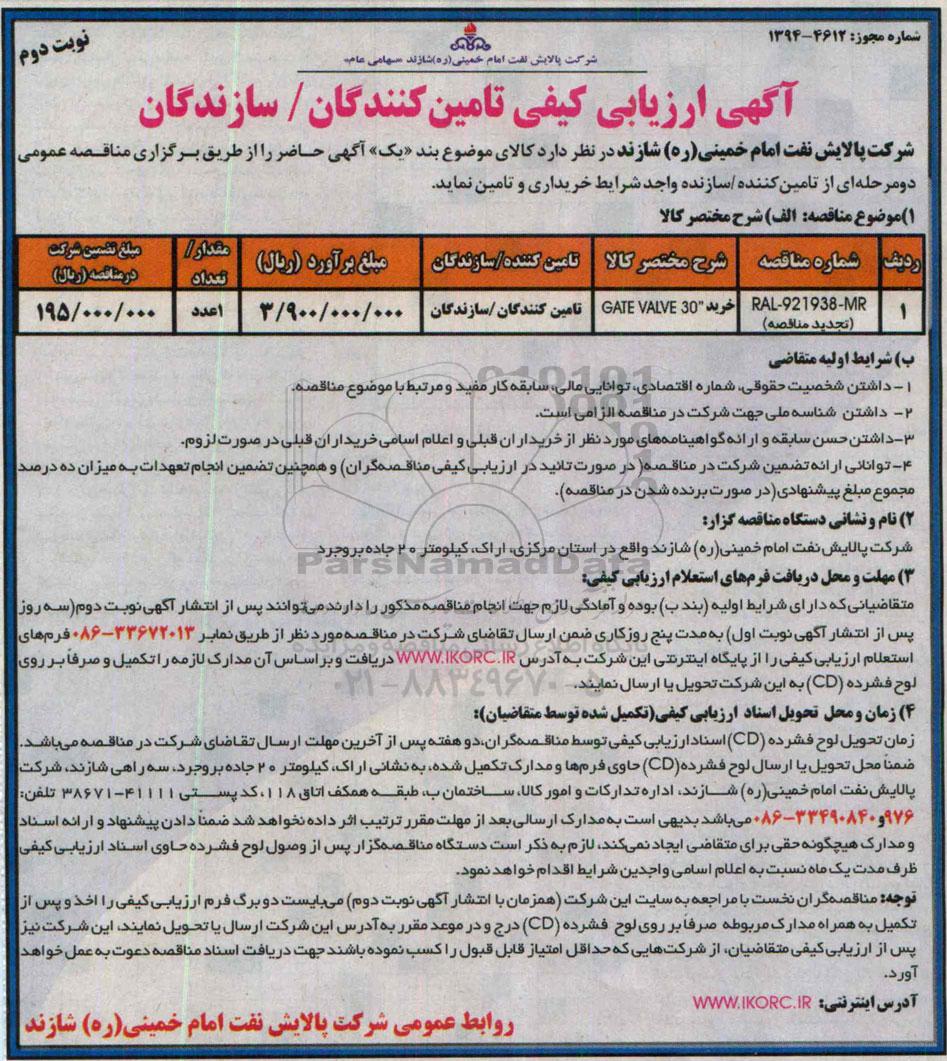 شماره مجوز: ۴۶۱۲-۱۳۹۴
نوبت دوم
شرکت پالایش نفت امام خمینی(ره)شازند «سهامی عام»
آگهی ارزیابی کیفی تامین‌کنندگان/ سازندگان
شرکت پالایش نفت امام خمینی(ره) شازند در نظر دارد کالای موضوع بند «یک» آگهی حاضر را از طریق برگزاری مناقصه عمومی
دومرحله‌ای از تامین‌کننده/سازنده واجد شرایط خریداری و تامین نماید.
۱)موضوع مناقصه: الف) شرح مختصر کالا
ردیف شماره مناقصه شرح مختصر کالا تامین کننده/سازندگان مبلغ برآورد (ریال) مقدار/تعداد مبلغ تضمین شرکت درمناقصه (ریال)
۱ RAL-921938-MR (تجدید مناقصه) خرید GATE VALVE 30" تامین کنندگان /سازندگان ۳/۹۰۰/۰۰۰/۰۰۰ ۱عدد ۱۹۵/۰۰۰/۰۰۰
ب) شرایط اولیه متقاضی
۱- داشتن شخصیت حقوقی، شماره اقتصادی، توانایی مالی، سابقه کار مفید و مرتبط با موضوع مناقصه.
۲- داشتن شناسه ملی جهت شرکت در مناقصه الزامی است.
۳-داشتن حسن سابقه و ارائه گواهینامه‌های مورد نظر از خریداران قبلی و اعلام اسامی خریداران قبلی در صورت لزوم.
۴- توانائی ارائه تضمین شرکت در مناقصه( در صورت تائید در ارزیابی کیفی مناقصه‌گران) و همچنین تضمین انجام تعهدات به میزان ده درصد
مجموع مبلغ پیشنهادی(در صورت برنده شدن در مناقصه).
۲) نام و نشانی دستگاه مناقصه گزار:
شرکت پالایش نفت امام خمینی(ره) شازند واقع در استان مرکزی، اراک، کیلومتر ۲۰ جاده بروجرد
ParsNamadData
۳) مهلت و محل دریافت فرم‌های استعلام ارزیابی کیفی:
متقاضیانی که دارای شرایط اولیه (بند ب) بوده و آمادگی لازم جهت انجام مناقصه مذکور را دارند می‌توانند پس از انتشار آگهی نوبت دوم(سه روز
پس از انتشار آگهی نوبت اول) به مدت پنج روزکاری ضمن ارسال تقاضای شرکت در مناقصه مورد نظر از طریق نمابر ۳۳۶۷۲۰۱۳-۰۸۶ فرم‌های
استعلام ارزیابی کیفی را از پایگاه اینترنتی این شرکت به آدرس WWW.IKORC.IR دریافت و بر اساس آن مدارک لازمه را تکمیل و صرفاً بر روی
لوح فشرده (CD) به این شرکت تحویل یا ارسال نمایند.
۰۲۱-۸۸۳۴۹۶۷۰-۵
۴) زمان و محل تحویل اسناد ارزیابی کیفی(تکمیل شده توسط متقاضیان):
زمان تحویل لوح فشرده (CD) اسناد ارزیابی کیفی توسط مناقصه‌گران،دو هفته پس از آخرین مهلت ارسال تقاضای شرکت در مناقصه می‌باشد.
ضمناً محل تحویل یا ارسال لوح فشرده(CD) حاوی فرم‌ها و مدارک تکمیل شده، به نشانی اراک، کیلومتر ۲۰ جاده بروجرد، سه راهی شازند، شرکت
پالایش نفت امام خمینی(ره) شازند، اداره تدارکات و امور کالا، ساختمان ب، طبقه همکف اتاق ۱۱۸، کد پستی ۴۱۱۱۱-۳۸۶۷۱ تلفن:
۹۷۶و۳۳۴۹۰۸۴۰-۰۸۶ می‌باشد بدیهی است به مدارک ارسالی بعد از مهلت مقرر ترتیب اثر داده نخواهد شد ضمناً دادن پیشنهاد و ارائه اسناد
و مدارک هیچگونه حقی برای متقاضی ایجاد نمی‌کند، لازم به ذکر است دستگاه مناقصه‌گزار پس از وصول لوح فشرده حاوی اسناد ارزیابی کیفی
ظرف مدت یک ماه نسبت به اعلام اسامی واجدین شرایط اقدام خواهد نمود.
توجه: مناقصه‌گران نخست با مراجعه به سایت این شرکت (همزمان با انتشار آگهی نوبت دوم) می‌بایست دو برگ فرم ارزیابی کیفی را اخذ و پس از
تکمیل به همراه مدارک مربوطه صرفاً بر روی لوح فشرده (CD) درج و در موعد مقرر به آدرس این شرکت ارسال یا تحویل نمایند، این شرکت نیز
پس از ارزیابی کیفی متقاضیان، از شرکت‌هایی که حداقل امتیاز قابل قبول را کسب نموده باشند جهت دریافت اسناد مناقصه دعوت به عمل خواهد
آورد.
آدرس اینترنتی: WWW.IKORC.IR
روابط عمومی شرکت پالایش نفت امام خمینی(ره) شازند